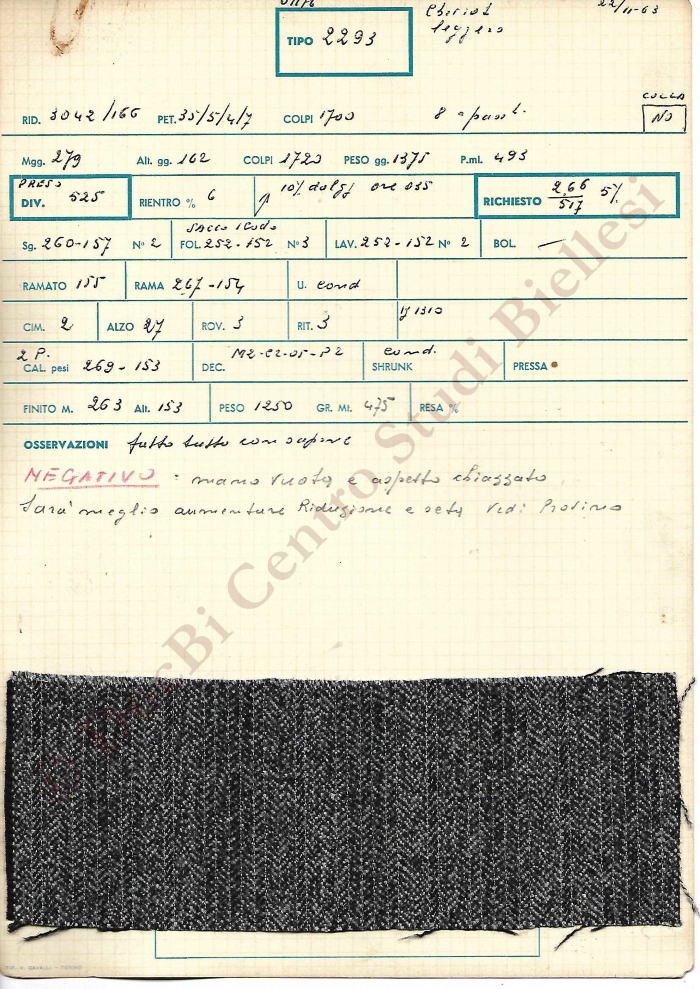 22/11-63
TIPO 2293
leggero
RID. 3042/166 PET. 35/5/4/7 COLPI 1700 8
COLLA
NO
Mgg. 279 Alt. gg. 162 COLPI 1720 PESO gg. 1375 P.ml. 493
PRESO
DIV. 525 RIENTRO % 6 10% RICHIESTO 2,66 5%
517
SACCO
Sg. 260-157 N° 2 FOL. 252-152 N° 3 LAV. 252-152 N° 2 BOL. —
RAMATO 155 RAMA 267-154 U. cond
CIM. 2 ALZO 27 ROV. 3 RIT. 3 1310
2 P.
CAL. pesi 269-153 DEC. M2-C2-05-P2 SHRUNK cond. PRESSA
FINITO M. 263 Alt. 153 PESO 1250 GR. Mt. 475 RESA %
OSSERVAZIONI tutto con sapone
NEGATIVO: mano vuota e aspetto chiazzato
Sara' meglio aumentare Riduzione e seta Vedi Protimo
© DocBi Centro Studi Biellesi